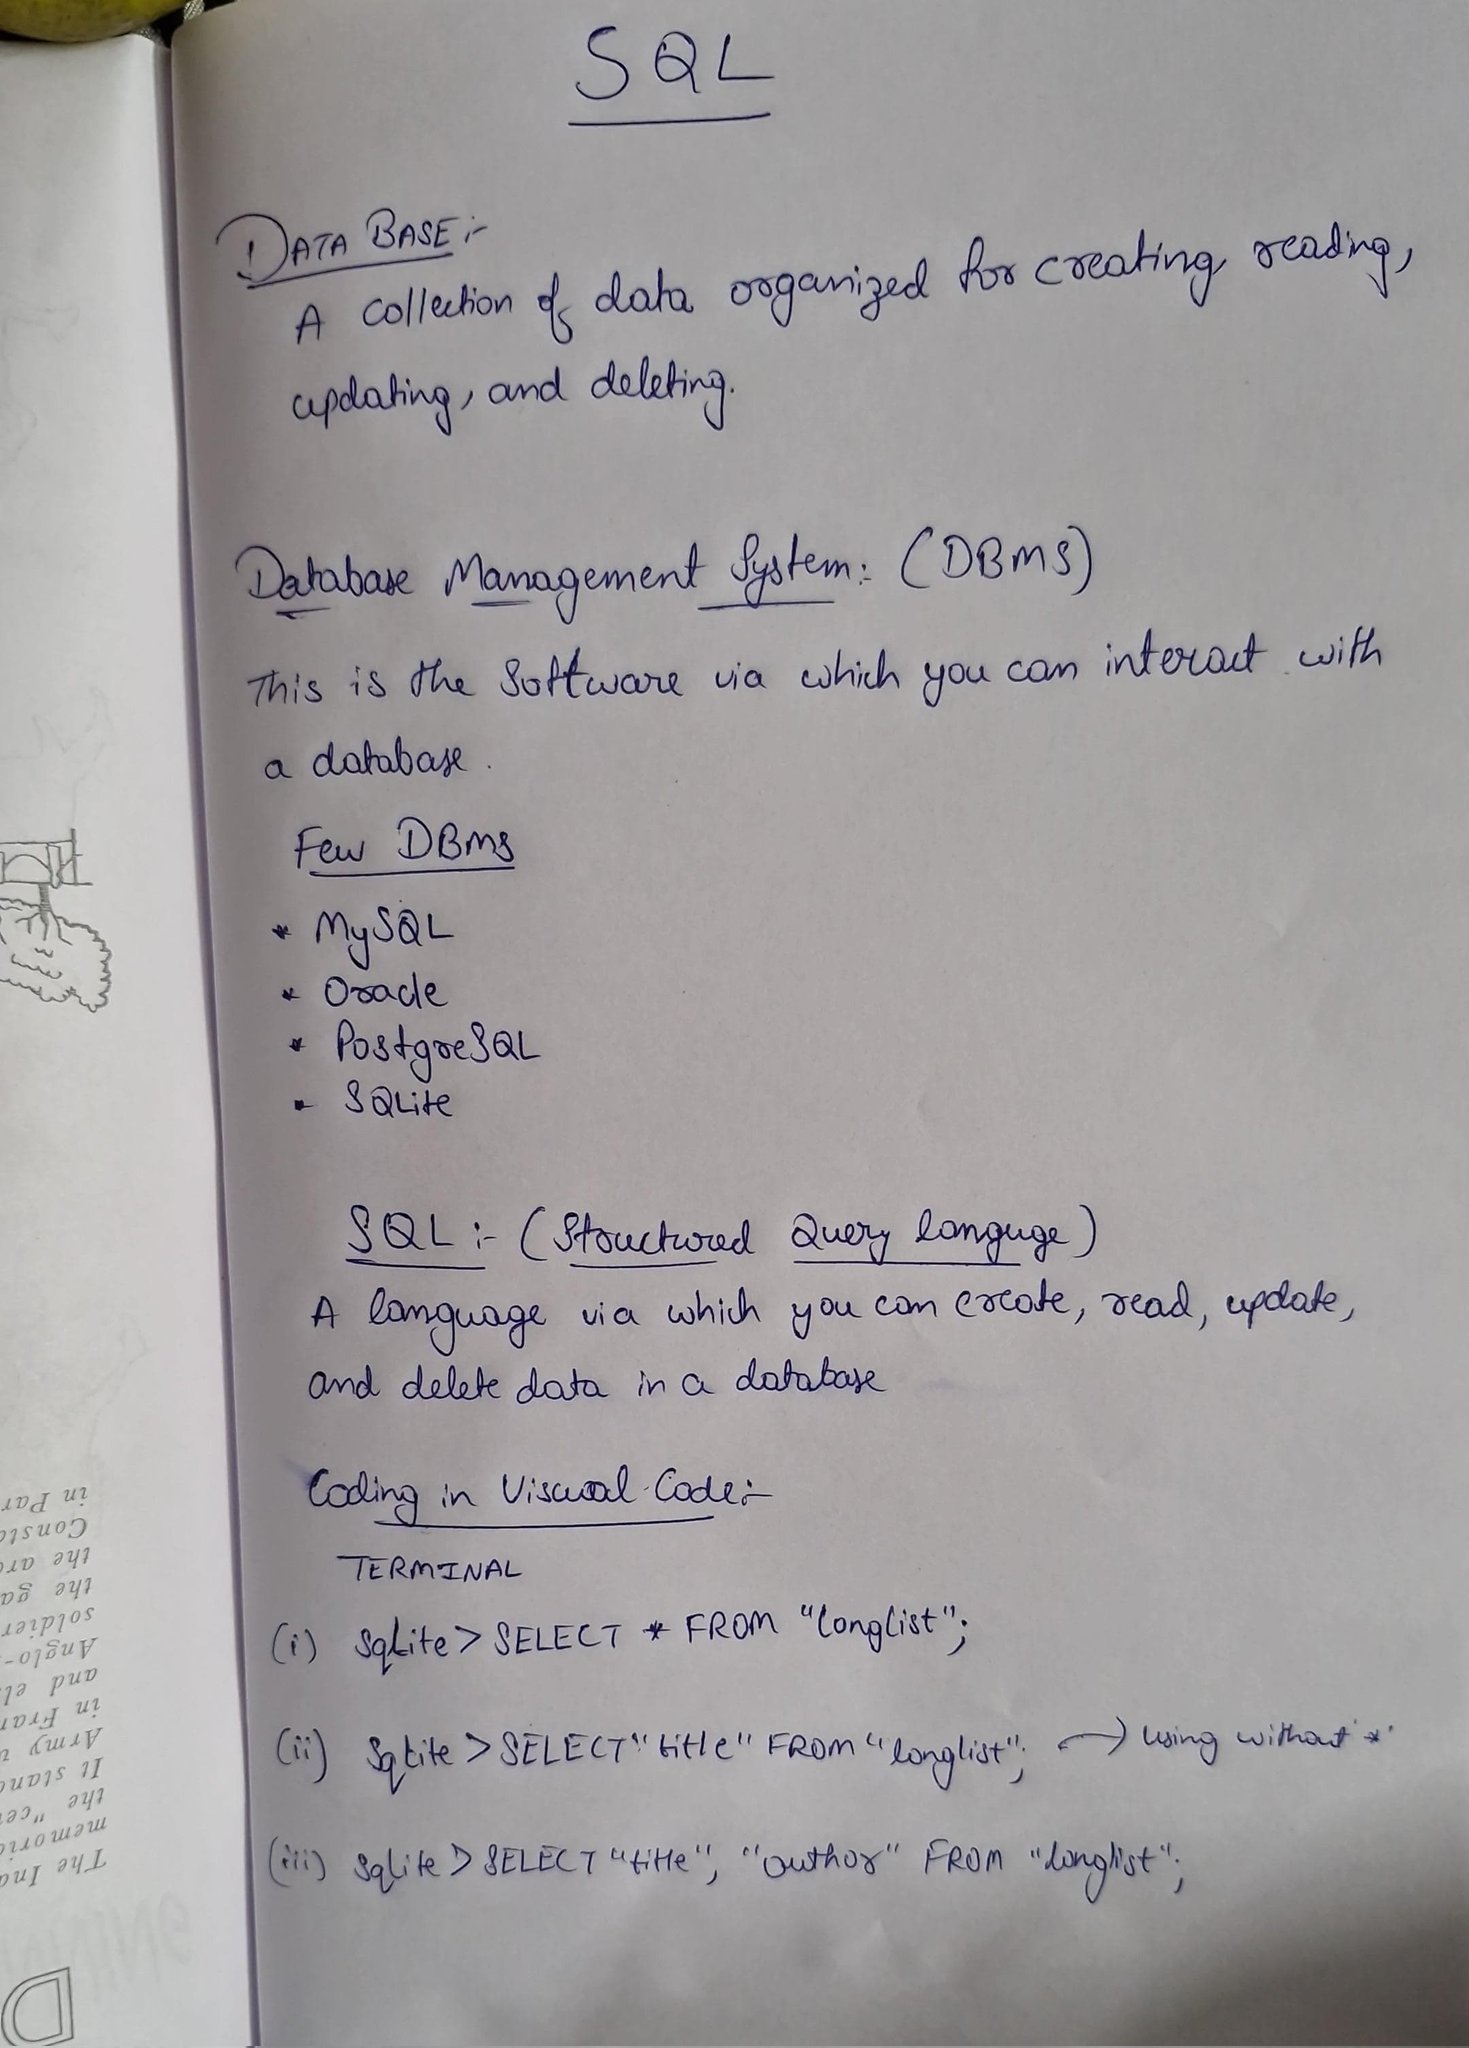 SQL
DATA BASE :-
A collection of data organized for creating, reading,
updating, and deleting.
Database Management System :- (DBMS)
This is the Software via which you can interact with
a database.
Few DBMS
* MySQL
* Oracle
* PostgreSQL
* SQLite
SQL :- (Structured Query languge)
A language via which you can create, read, update,
and delete data in a database
Coding in Viscual Code:-
TERMINAL
(i) sqlite > SELECT * FROM "longlist";
(ii) sqlite > SELECT "title" FROM "longlist"; → Using without *
(iii) sqlite > SELECT "title", "author" FROM "longlist";
The Ind
memoria
the "ce
It stand
Army
in Fran
and el
Anglo-
soldier
the ga
the arc
Consta
in Par
D